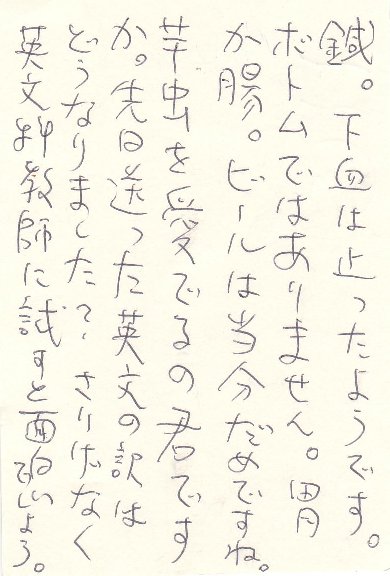 鍼。下血は止ったようです。
ボトムではありません。胃
か腸。ビールは当分だめですね。
芋虫を愛でるの君です
か。先日送った英文の訳は
どうなりました？さりげなく
英文科教師に試すと面白いでしょう。